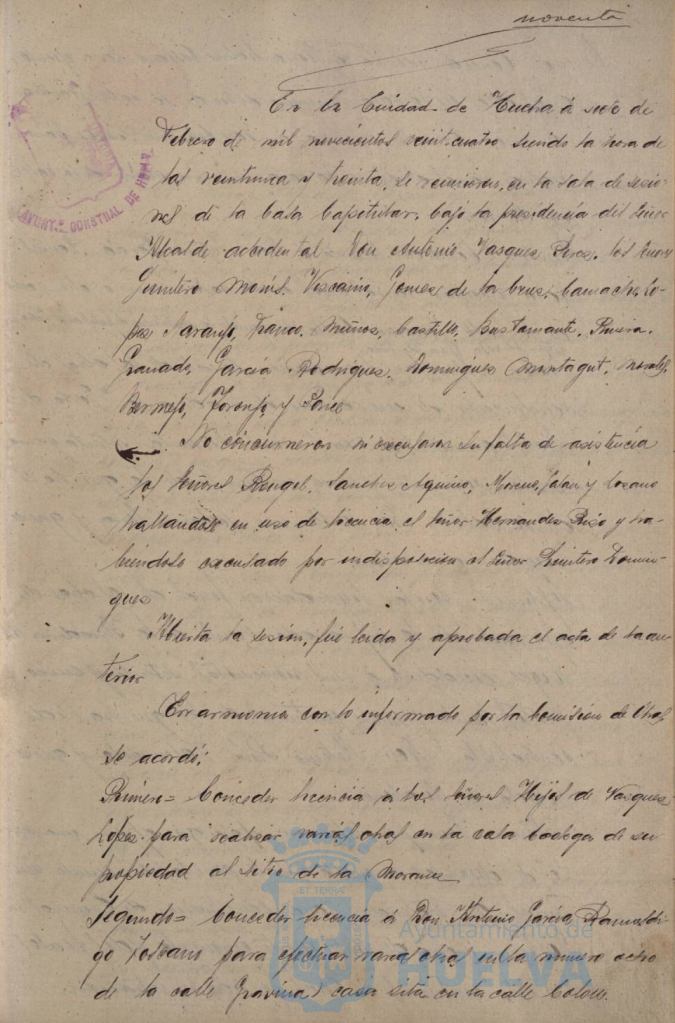 noventa
En la Ciudad de Huelva á siete de
Febrero de mil novecientos veinticuatro siendo la hora de
las veintiuna y treinta, se reunieron, en la sala de sesio-
nes de la Casa Capitular, bajo la presidencia del Señor
Alcalde accidental Don Antonio Vasques Peres, los Señores
Quintero Monis, Viscaino, Gomes de la Crus, Camacho, Lo-
pes Naranjo, Franco, Muños, Castillo, Bustamante, Rivera,
Granado, García Rodrigues, Domingues Montagut, Morales,
Bermejo, Toronjo y Ponce
No concurrieron ni excusaron su falta de asistencia
los Señores Rengel, Sanches Aquino, Moreno, Jalón y Losano
hallandose en uso de licencia el Señor Hernandes Piso y ha-
biendolo excusado por indisposicion el Señor Quintero Domin-
gues
Abierta la sesión, fué leida y aprobada el acta de la an-
terior
En armonia con lo informado por la Comisión de Obras
se acordó:
Primero = Conceder licencia á los Señores Hijos de Vasques
Lopes para realisar varias obras en la casa bodega de su
propiedad al sitio de la Morana
Segundo = Conceder licencia á Don Antonio García
Toscano para efectuar varias obras en la numero ocho
de la calle Gravina casa sita en la calle Colon.
AYUNT.º CONSTNAL DE HUELVA
ET TERRA
Ayuntamiento de
HUELVA